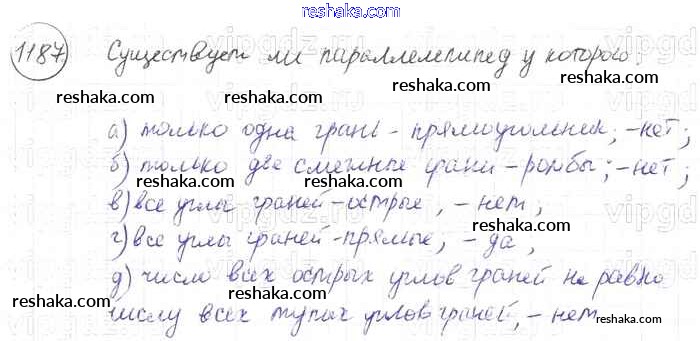 reshaka.com
1187 Существует ли параллелепипед у которого:
reshaka.com reshaka.com reshaka.com
а) только одна грань - прямоугольник; - нет;
reshaka.com reshaka.com reshaka.com
б) только две смежные грани - ромбы; - нет;
в) все углы граней - острые, - нет;
reshaka.com reshaka.com reshaka.com
г) все углы граней - прямые; - да,
reshaka.com reshaka.com
д) число всех острых углов граней не равно
reshaka.com reshaka.com
числу всех тупых углов граней, - нет
reshaka.com